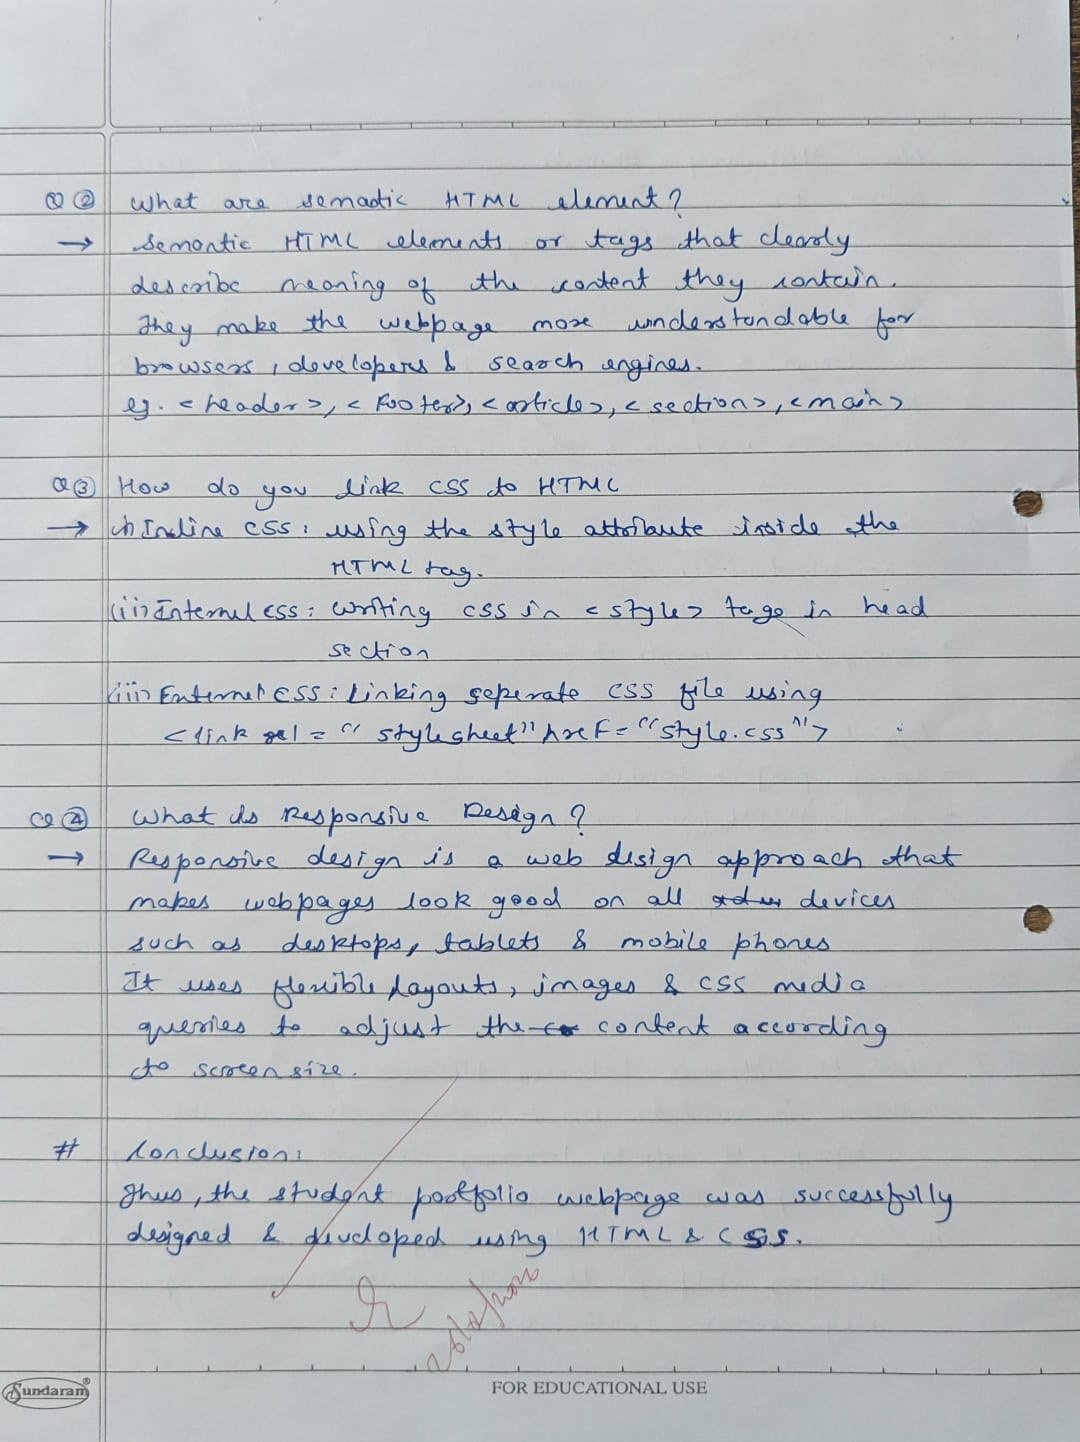 Q ② What are semadic HTML element?
→ Semantic HTML elements or tags that clearly
describe meaning of the content they contain.
They make the webpage more understandable for
browsers, developers & search engines.
eg. <header>, <footer>, <article>, <section>, <main>
Q ③ How do you link CSS to HTML
→ (i) Inline CSS: using the style attribute inside the
HTML tag.
(ii) Internal CSS: Writing CSS in <style> tage in head
section
(iii) External CSS: Linking seperate CSS file using
<link rel = "stylesheet" href = "style.css">
Q ④ What is Responsive Design?
→ Responsive design is a web design approach that
makes webpages look good on all devices
such as desktops, tablets & mobile phones
It uses flexible layouts, images & CSS media
queries to adjust the content according
to screen size.
# Conclusion:
Thus, the student portfolio webpage was successfully
designed & developed using HTML & CSS.
Sundaram®
FOR EDUCATIONAL USE